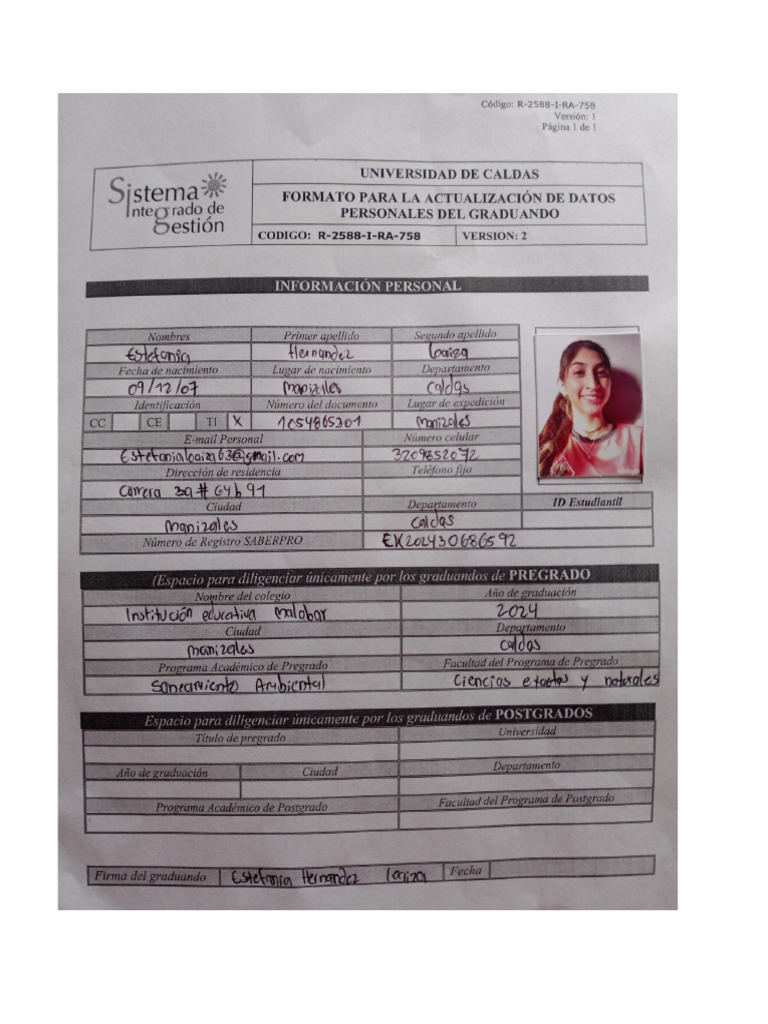 Código: R-2588-I-RA-758
Versión: 1
Página 1 de 1
Sistema
Integrado de
gestión
UNIVERSIDAD DE CALDAS
FORMATO PARA LA ACTUALIZACIÓN DE DATOS
PERSONALES DEL GRADUANDO
CODIGO: R-2588-I-RA-758 VERSION: 2
INFORMACIÓN PERSONAL
Nombres Primer apellido Segundo apellido
Estefania Hernandez loaiza
Fecha de nacimiento Lugar de nacimiento Departamento
09/12/07 Manizales Caldas
Identificación Número del documento Lugar de expedición
CC CE TI X 1054865301 Manizales
E-mail Personal Número celular
Estefanialoaiza63@gmail.com 3209852072
Dirección de residencia Teléfono fijo
Carrera 39 # 64b 91
Ciudad Departamento ID Estudiantil
Manizales Caldas
Número de Registro SABERPRO EK202430686592
(Espacio para diligenciar únicamente por los graduandos de PREGRADO
Nombre del colegio Año de graduación
Institución educativa Malabar 2024
Ciudad Departamento
manizales Caldas
Programa Académico de Pregrado Facultad del Programa de Pregrado
Saneamiento Ambiental Ciencias exactas y naturales
Espacio para diligenciar únicamente por los graduandos de POSTGRADOS
Título de pregrado Universidad
Año de graduación Ciudad Departamento
Programa Académico de Postgrado Facultad del Programa de Postgrado
Firma del graduando Estefania Hernandez loaiza Fecha